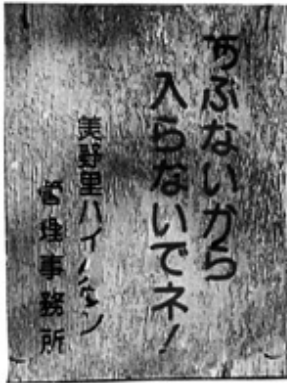 あぶないから
入らないでネ!
美野里ハイタウン
管理事務所